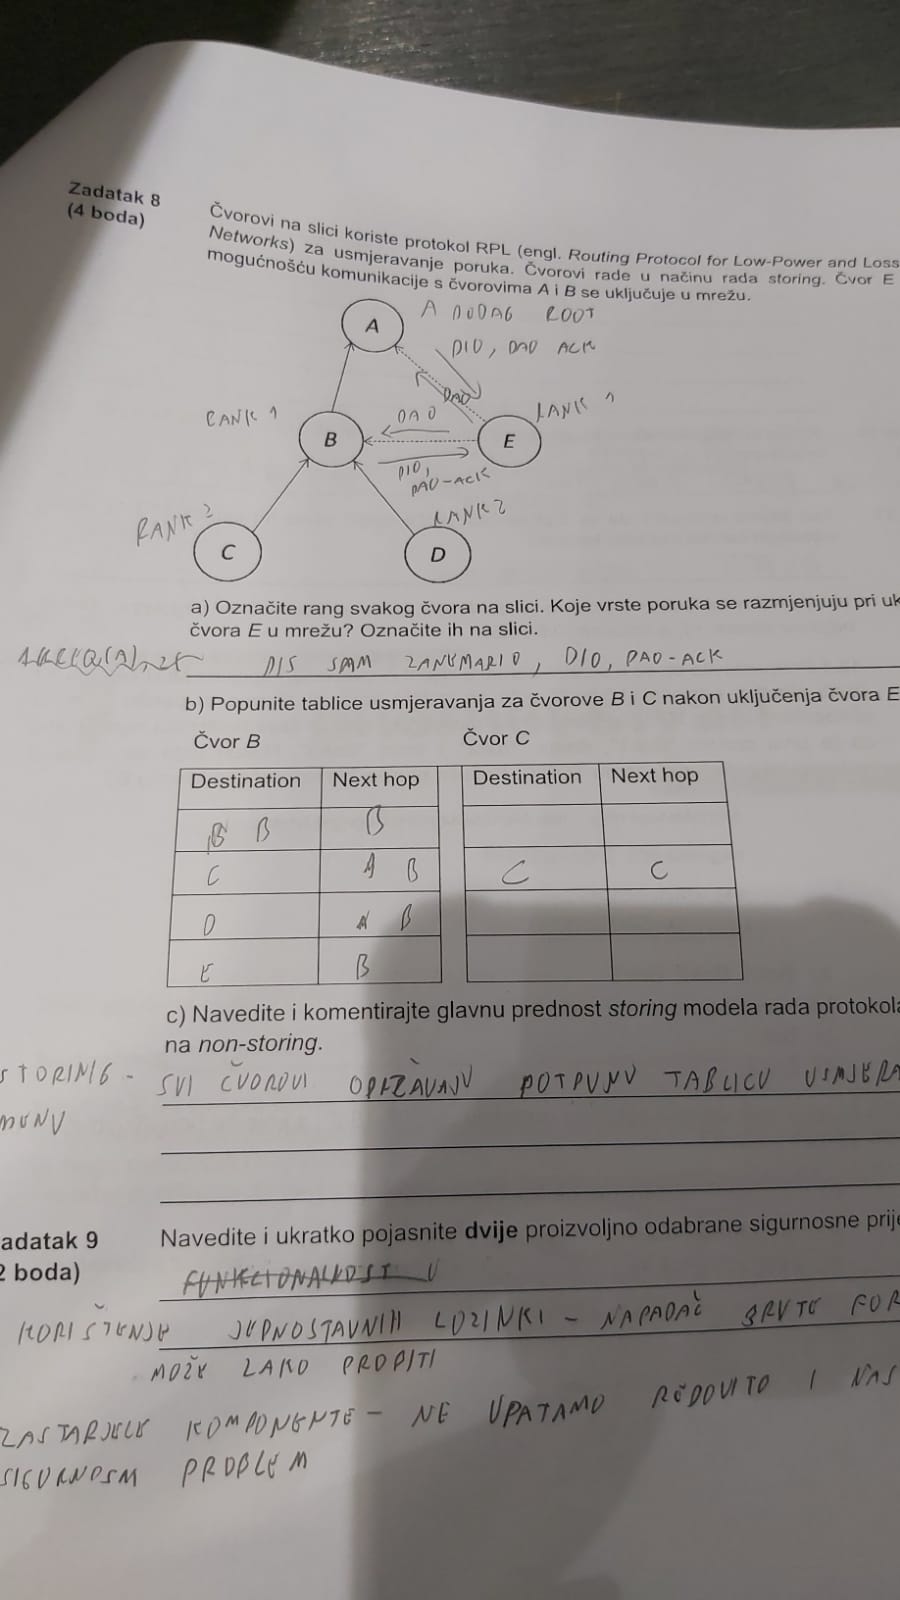 Zadatak 8
(4 boda)
Čvorovi na slici koriste protokol RPL (engl. Routing Protocol for Low-Power and Loss
Networks) za usmjeravanje poruka. Čvorovi rade u načinu rada storing. Čvor E
mogućnošću komunikacije s čvorovima A i B se uključuje u mrežu.
A DODAG ROOT
A
DIO, DAO ACK
DAO
RANK 1
B
DAO
E
RANK 1
DIO,
DAO-ACK
RANK 2
RANK 2
C
D
a) Označite rang svakog čvora na slici. Koje vrste poruka se razmjenjuju pri uk
čvora E u mrežu? Označite ih na slici.
DIS SPAM ZANEMARIO, DIO, DAO-ACK
b) Popunite tablice usmjeravanja za čvorove B i C nakon uključenja čvora E
Čvor B Čvor C
Destination Next hop Destination Next hop
B B B
C A B C C
D A B
E B
c) Navedite i komentirajte glavnu prednost storing modela rada protokola
na non-storing.
STORING - SVI ČVOROVI ODRŽAVAJU POTPUNU TABLICU USMJERA
Zadatak 9
2 boda)
Navedite i ukratko pojasnite dvije proizvoljno odabrane sigurnosne prije
FUNKCIONALNOST U
KORIŠTENJE JEDNOSTAVNIH LOZINKI - NAPADAČ BRUTE FOR
MOŽE LAKO PROBITI
ZASTARJELE KOMPONENTE - NE UPATAMO REDOVITO I NAS
SIGURNOSNI PROBLEM